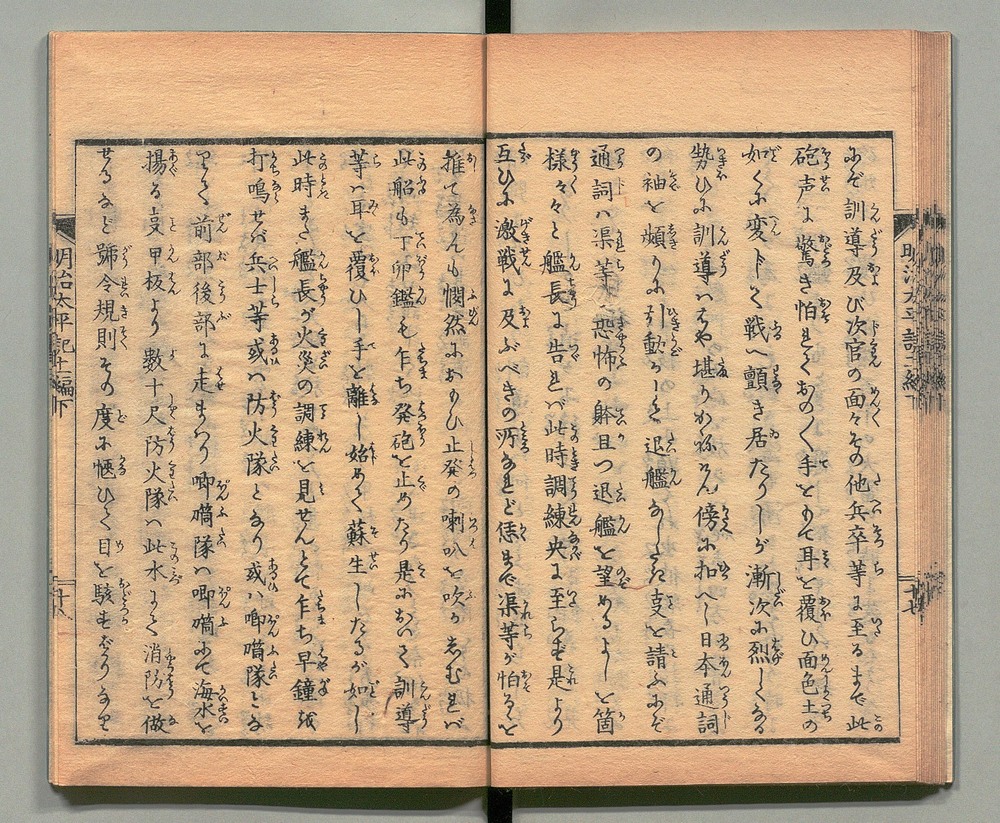 みぞ訓導及び次官の面々その他兵卒等に至るまで此
砲声に驚き怕れておの〳〵手をもて耳を覆ひ面色土の
如くに変じて戦へ顫き居たりしが漸次に烈しくなる
勢ひに訓導はや堪りかねけん傍に扣へし日本通詞
の袖を頻りに引動かして退艦なしたき㕝を請ふにぞ
通詞ハ渠等が恐怖の躰且つ退艦を望めるよしを箇
様々々と艦長に告れバ此時調練央に至らず是より
互ひに激戦に及ぶべきの所なれど恁まで渠等が怕るゝを
推て為んも憫然におもひ止発の喇叭を吹かしむれバ
此船も丁卯鑑も乍ち発砲を止めたり是において訓導
等ハ耳を覆ひし手を離し始めて蘇生したるが如し
此時また艦長が火災の調練を見せんとて乍ち早鐘を
打鳴せバ兵士等或ハ防火隊となり或ハ喞筩隊とな
りて前部後部に走まハり喞筩隊ハ喞筩にて海水を
揚る㕝甲板より数十尺防火隊ハ此水にて消防を做
せるなど號令規則その度に愜ひて目を駭すばかりなり
明治太平記十一編下
明治太平記十一編下
十七
十八